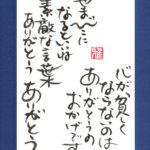 心が貧しく
ならないのは
ありがとうの
おかげです
素敵な言葉
ありがとう ありがとう